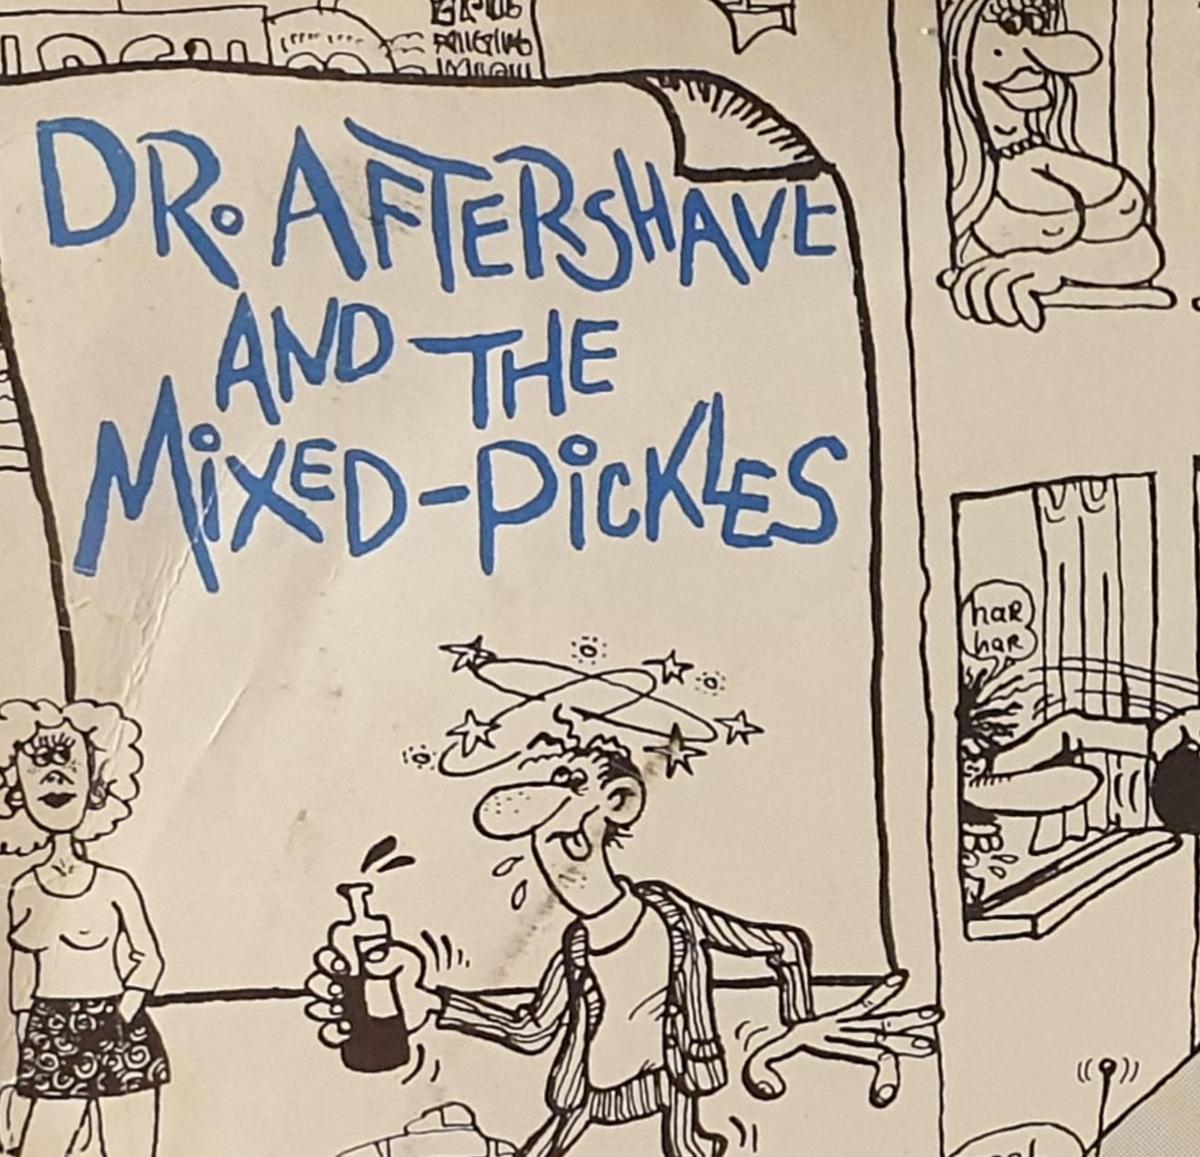 DR. AFTERSHAVE
AND THE
MIXED-PICKLES
har
har